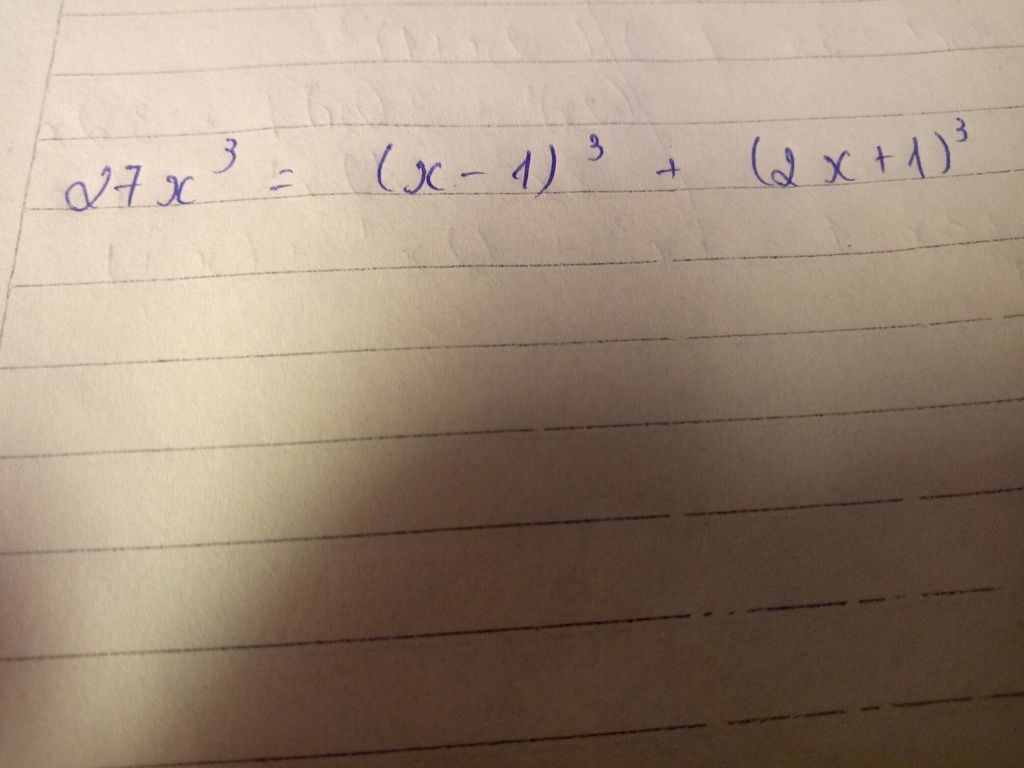 27x³ = (x - 1)³ + (2x + 1)³